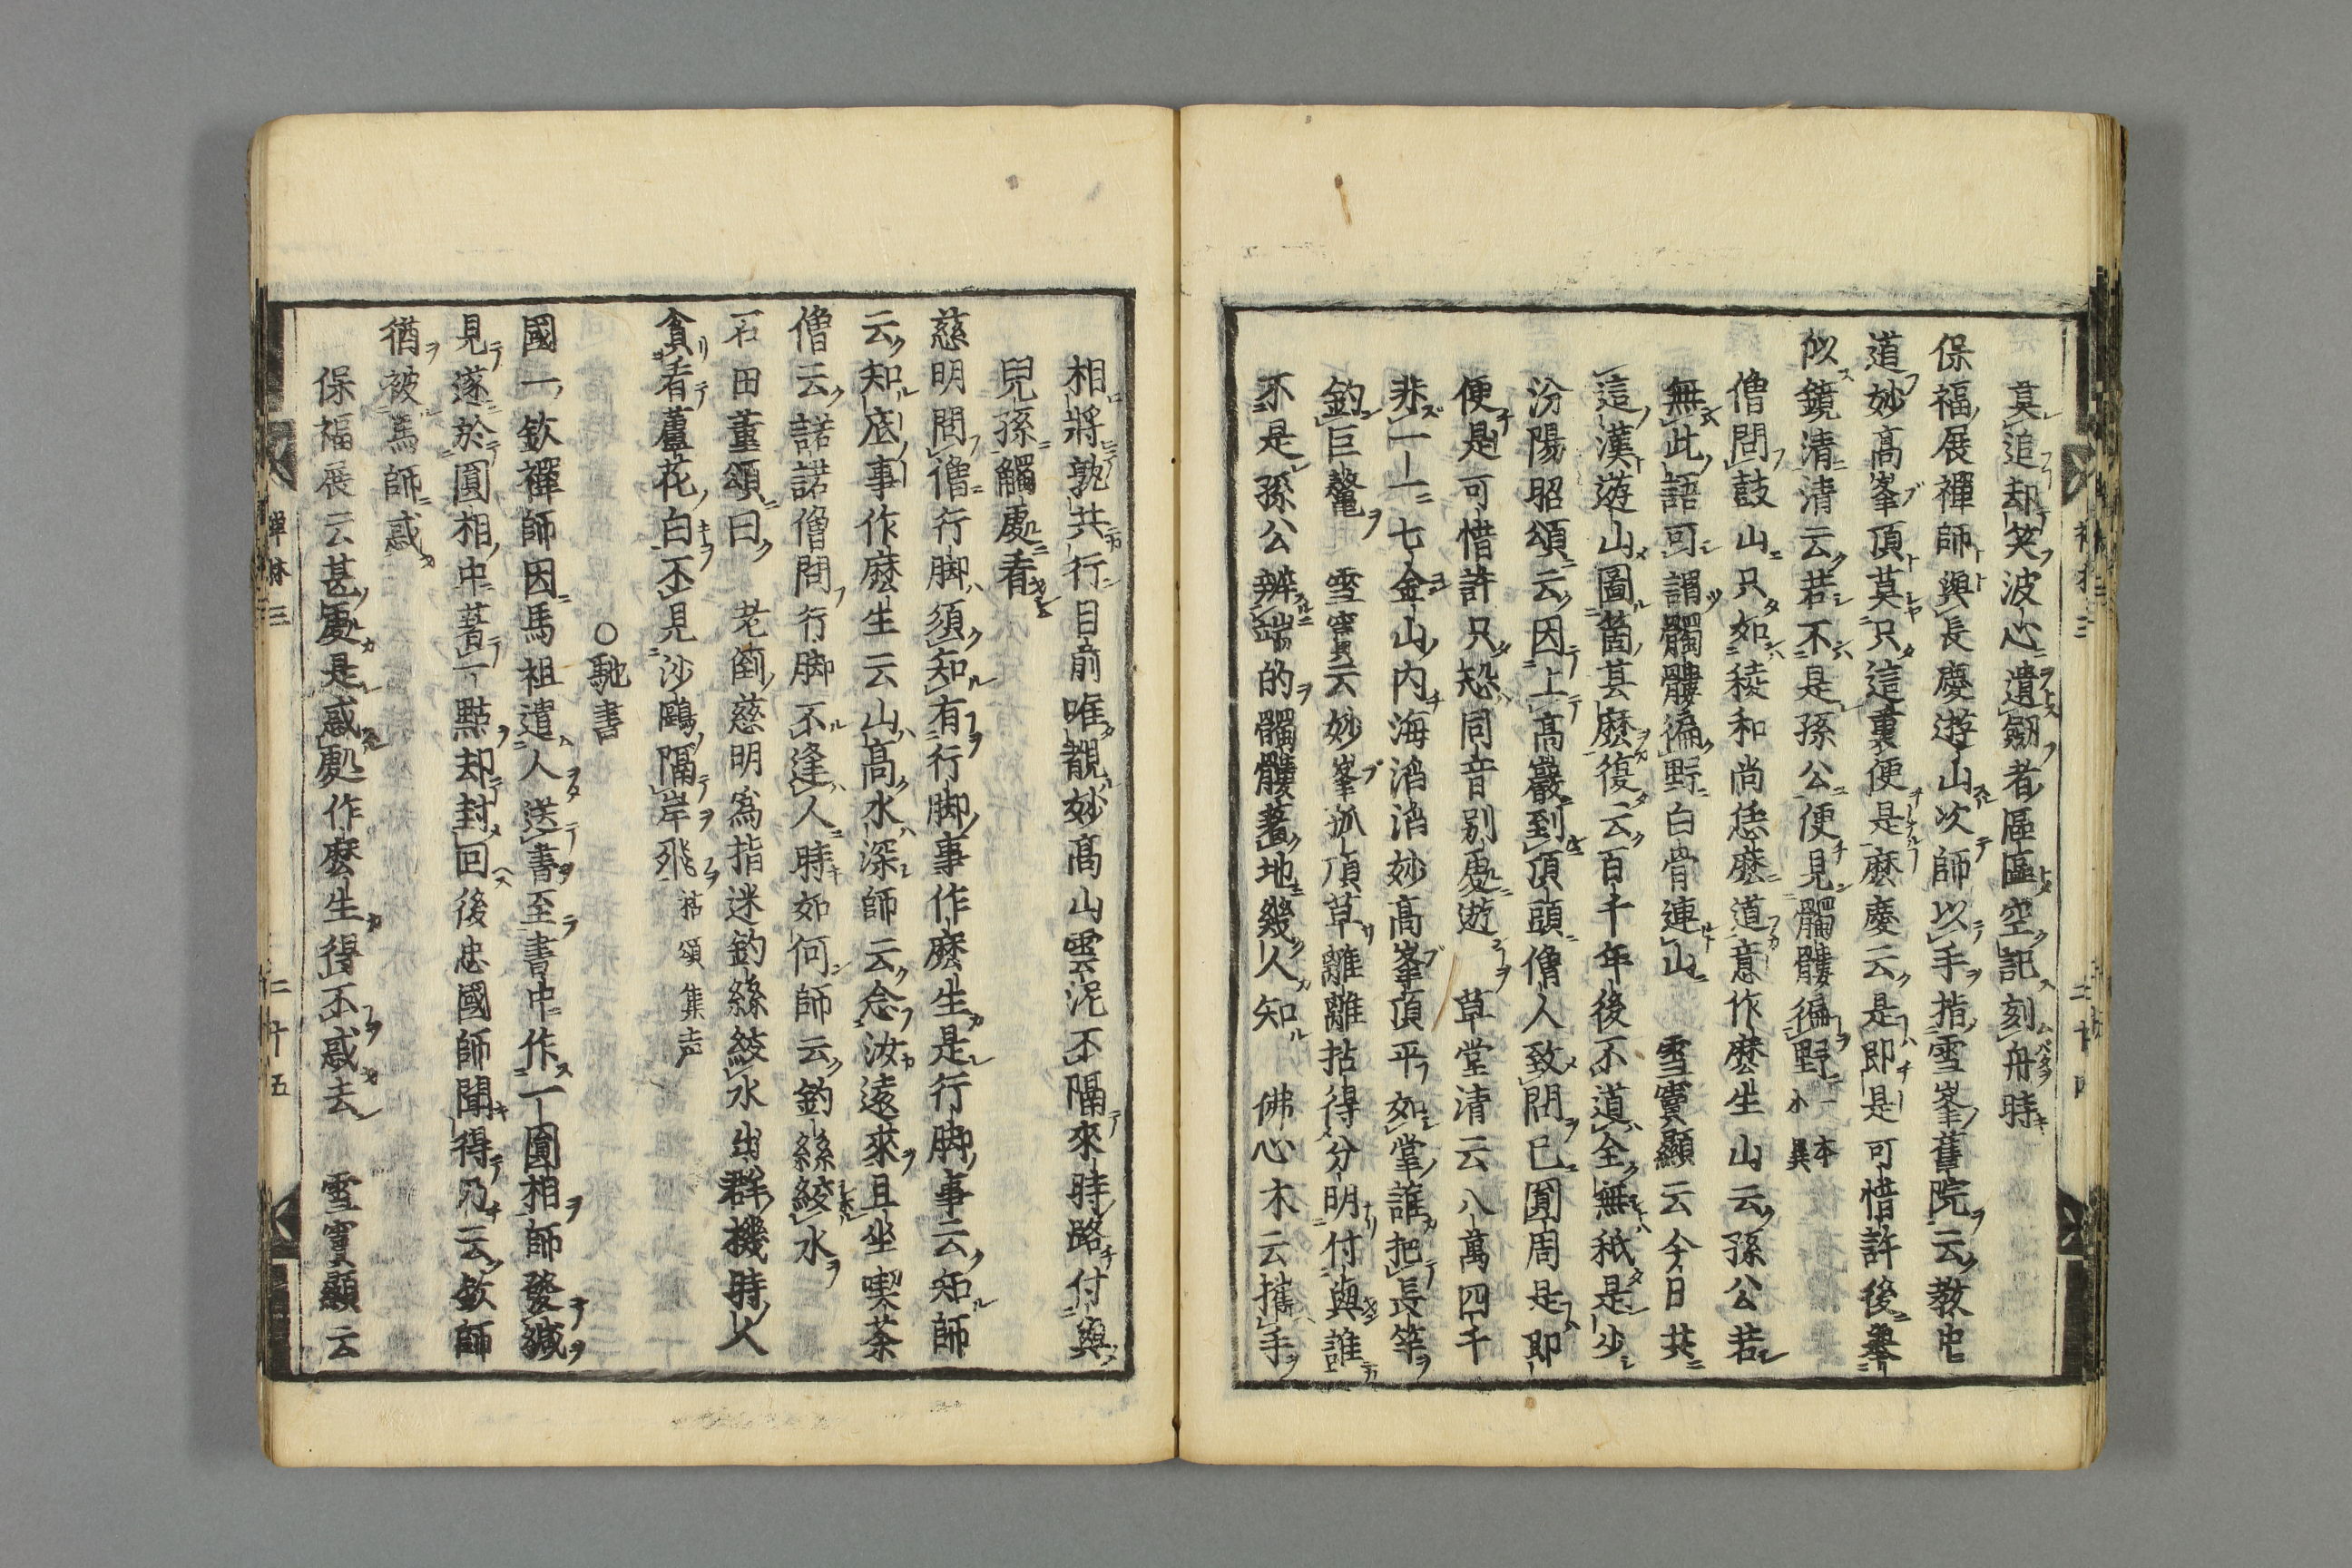 莫追却笑波心遺劔者區區空記刻舟時
保福展禪師與長慶遊山次師以手指雪峯舊院云教中
道妙高峯頂莫只這裏便是麽慶云是即是可惜許後舉
似鏡清清云若不是孫公便見髑髏徧野一本小異
僧問鼓山只如稜和尚恁麽道意作麽生山云孫公若
無此語可謂髑髏徧野白骨連山　雪竇顯云今日共
這漢遊山圖箇甚麽復云百千年後不道全無秖是少
汾陽昭頌云因上高巖到頂頭僧人致問已圓周是即
便是可惜許只恐同音別處遊　草堂清云八萬四千
非一一七金山内海滔滔妙高峯頂平如掌誰把長竿
釣巨鼇　雪竇云妙峯孤頂草離離拈得分明付與誰
不是孫公辨端的髑髏著地幾人知　佛心木云攜手
相將孰共行目前唯覩妙高山雲泥不隔來時路付與
兒孫觸處看
慈明問僧行脚須知有行脚事作麽生是行脚事云知師
云知底事作麽生云山高水深師云念汝遠來且坐喫茶
僧云諾諾僧問行脚不逢人時如何師云釣絲絞水
石田薫頌曰　老倒慈明爲指迷釣絲絞水出群機時人
貪看蘆花白不見沙鷗隔岸飛拈頌集
○馳書
國一欽禪師因馬祖遣人送書至書中作一圓相師發緘
見遂於圓相中著一點却封回後忠國師聞得乃云欽師
猶被馬師惑
保福展云甚處是惑處作麽生得不惑去　雪竇顯云
禪林三
二十五